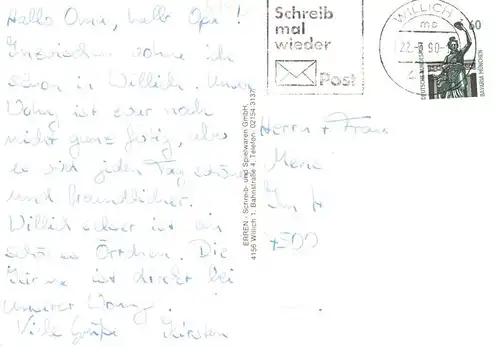 Hallo Oma, hallo Opa!
Inzwischen wohne ich
schon in Willich. Unsere
Wohng ist zwar noch
nicht ganz fertig, aber
es wird jeden Tag schöner
und freundlicher.
Willich selber ist ein
schönes Örtchen. Die
Kirche ist direkt bei
unserer Wohng.
Viele Grüße Kirsten
Schreib
mal
wieder
Post
WILLICH 1
mo
22.-3.90-
60
DEUTSCHE BUNDESPOST
BAVARIA MÜNCHEN
ERREN - Schreib- und Spielwaren GmbH
4156 Willich 1, Bahnstraße 4, Telefon: 02154/3137
Herrn + Frau
Im